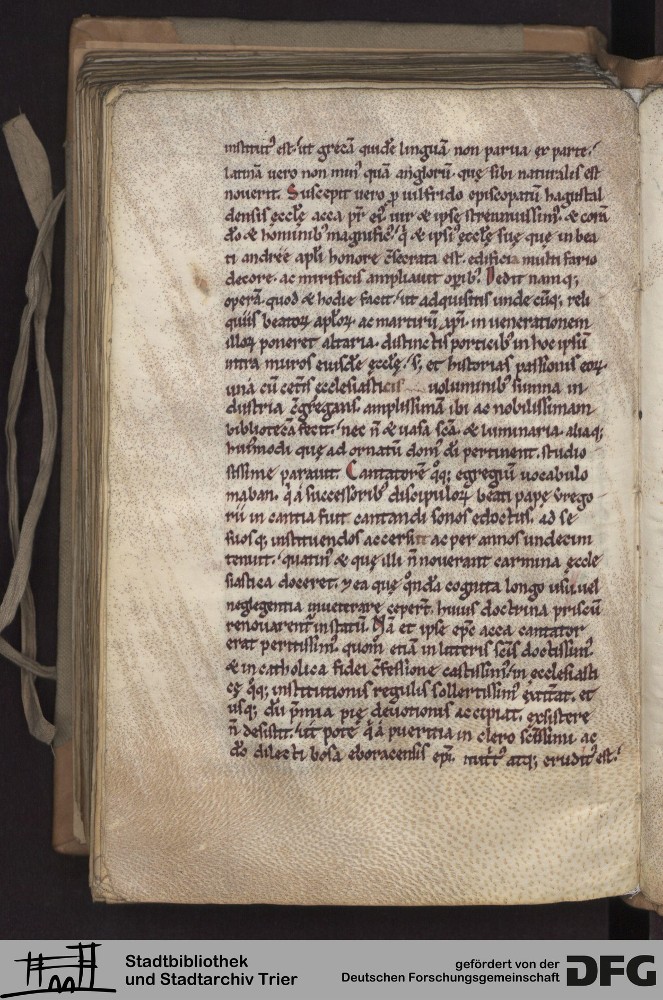 institut᷒ est. ut grecā quidē linguā non parua ex parte.
latinā uero non min᷒ quā anglorū que sibi naturalis est
nouerit. Suscepit uero ꝓ uilfrido episcopatū hagustal
densis eccłę acca pr̄ ei᷒ uir & ipse strenuissim᷒. & corā
dō & hominib᷒ magnific᷒. q̇ & ipsi᷒ eccłę suę que in bea
ti andreę apłi honore ↄ̄secrata est. edificia multifario
decore. ac mirificis ampliauit oꝑib᷒. Dedit namq;
operā. quod & hodie facit. ut adquisitis undecūq; reli
quiis beatoꝝ apłoꝝ. ac martirū xp̄i. in uenerationem
illoꝝ poneret altaria. distinctis porticib᷒ in hoc ipsū
intra muros eiusdē eccłę. s; et historias passionis eoꝝ
unā cū cet̄is ecclesiasticis uoluminib᷒ summa in
dustria ↄ̄gregans. amplissimā ibi ac nobilissimam
bibliotecā fecit. nec n̄ & uasa sc̄a. & luminaria. aliaq;
hui᷒modi que ad ornatū dom᷒ dī pertinent. studio
sissime parauit. Cantatorē q̊q; egregiū uocabulo
maban. q̇ a successorib᷒ discipuloꝝ beati papę grego
rii in cantia fuit cantandi sonos edoctus. ad se
suosq; instituendos accersiit ac per annos undecim
tenuit. quatin᷒ & quę illi n̄ nouerant carmina eccle
siastica doceret. & ea que q̊ndā cognita longo usu. uel
neglegentia inueterare cepert̄. huius doctrina priscū
renouarent̄ in statū. Nā et ipse ep̄c acca cantator
erat peritissim᷒. quom̊ etiā in litteris sc̄is doctissim᷒.
& in catholica fidei ↄ̄fessione castissim᷒. in ecclesiasti
cę q̊q; institutionis regulis sollertissim᷒ extit̄at. et
usq; dū p̄mia pię deuotionis accipiat. exsistere
n̄ desistit. ut pote q̇ a pueritia in clero sc̄issimi ac
dō dilecti bosa eboracensis ep̄i. nut̄t᷒ atq; erudit᷒ est.
Stadtbibliothek
und Stadtarchiv Trier
gefördert von der
Deutschen Forschungsgemeinschaft
DFG